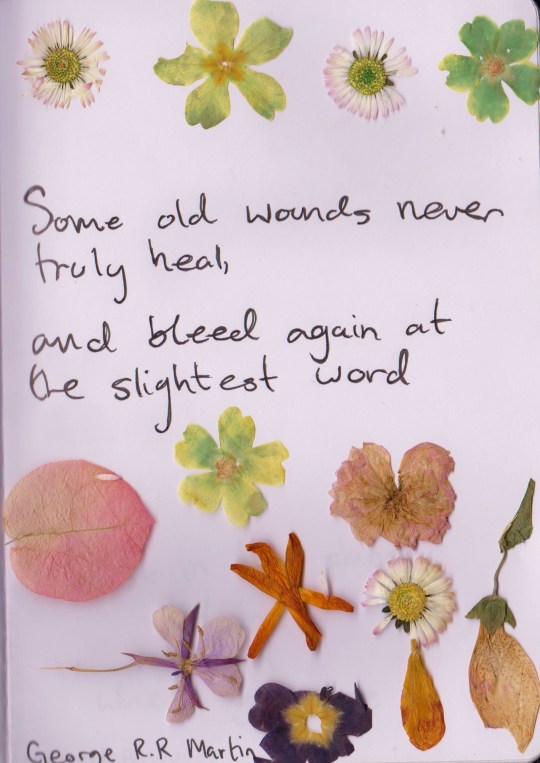 Some old wounds never
truly heal,
and bleed again at
the slightest word
George R.R Martin